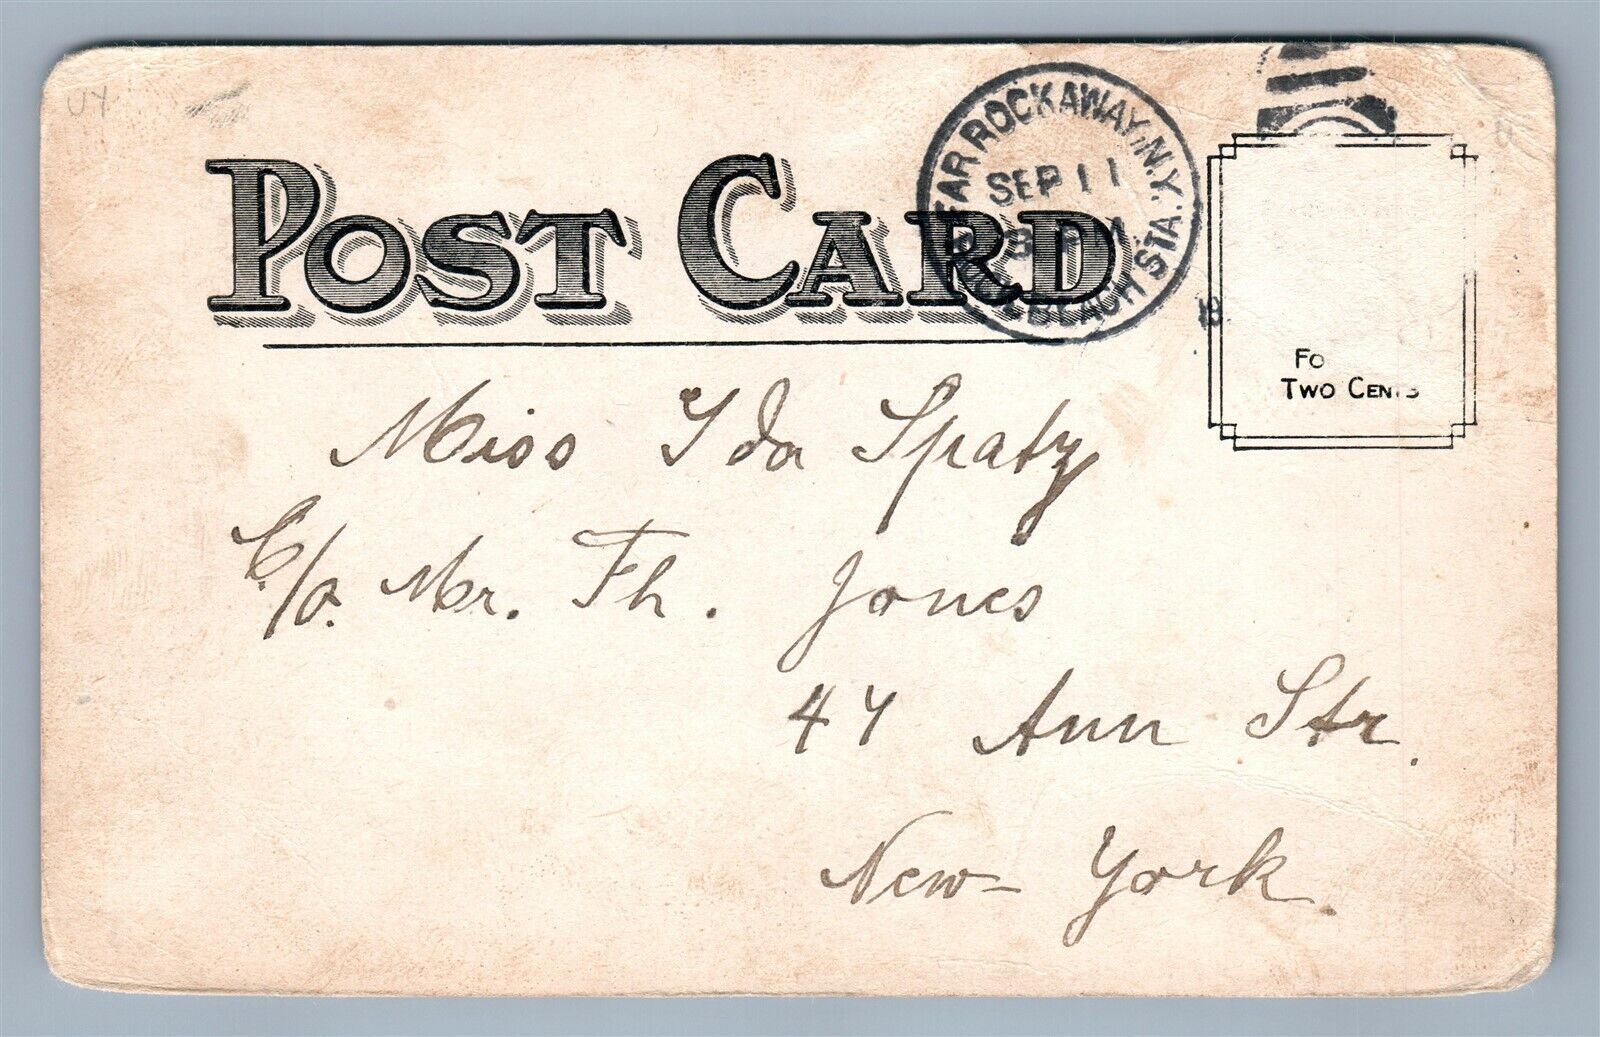 POST CARD
FAR ROCKAWAY, N.Y.
SEP 11
PM
BEACH STA.
Fo
Two Cents
Miss Ida Spatz
C/o. Mr. Th. Jones
47 Ann Str.
New York.